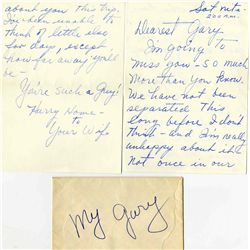 Sat nite -
2:00 A.M.
Dearest Gary.
I'm going to
miss you - so much
More than you know.
We have not been
separated this
long before I don't
think - and I'm really
unhappy about it.
Not once in our
about you this trip.
I've been unable to
think of little else
for days, except
how far away you'll
be -
You're such a Guy!
Hurry Home -
Your Wife
My Gary